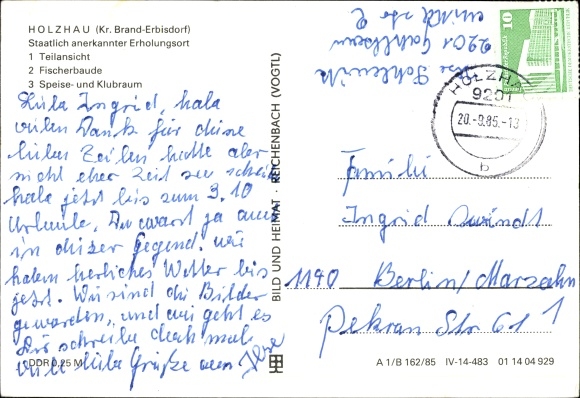 HOLZHAU (Kr. Brand-Erbisdorf)
Staatlich anerkannter Erholungsort
1 Teilansicht
2 Fischerbaude
3 Speise- und Klubraum
Liebe Ingrid, habe
vielen Dank für deine
lieben Zeilen hatte aber
nicht eher Zeit zu
habe jetzt bis zum 3.10
Urlaub. Du warst ja auch
in dieser Gegend. wir
haben herliches Wetter bis
jetzt. Wir sind die Bilder
geworden, und wie geht es
Dir schreibe doch mal
viele liebe Grüße von Ilse
DDR 0,25 M
BILD UND HEIMAT · REICHENBACH (VOGTL)
2201
10
HOLZHAU
9201
20.-9.85.-13
b
Familie
Ingrid
1140 Berlin/Marzahn
Pekran Str 61
A 1/B 162/85 IV-14-483 01 14 04 929